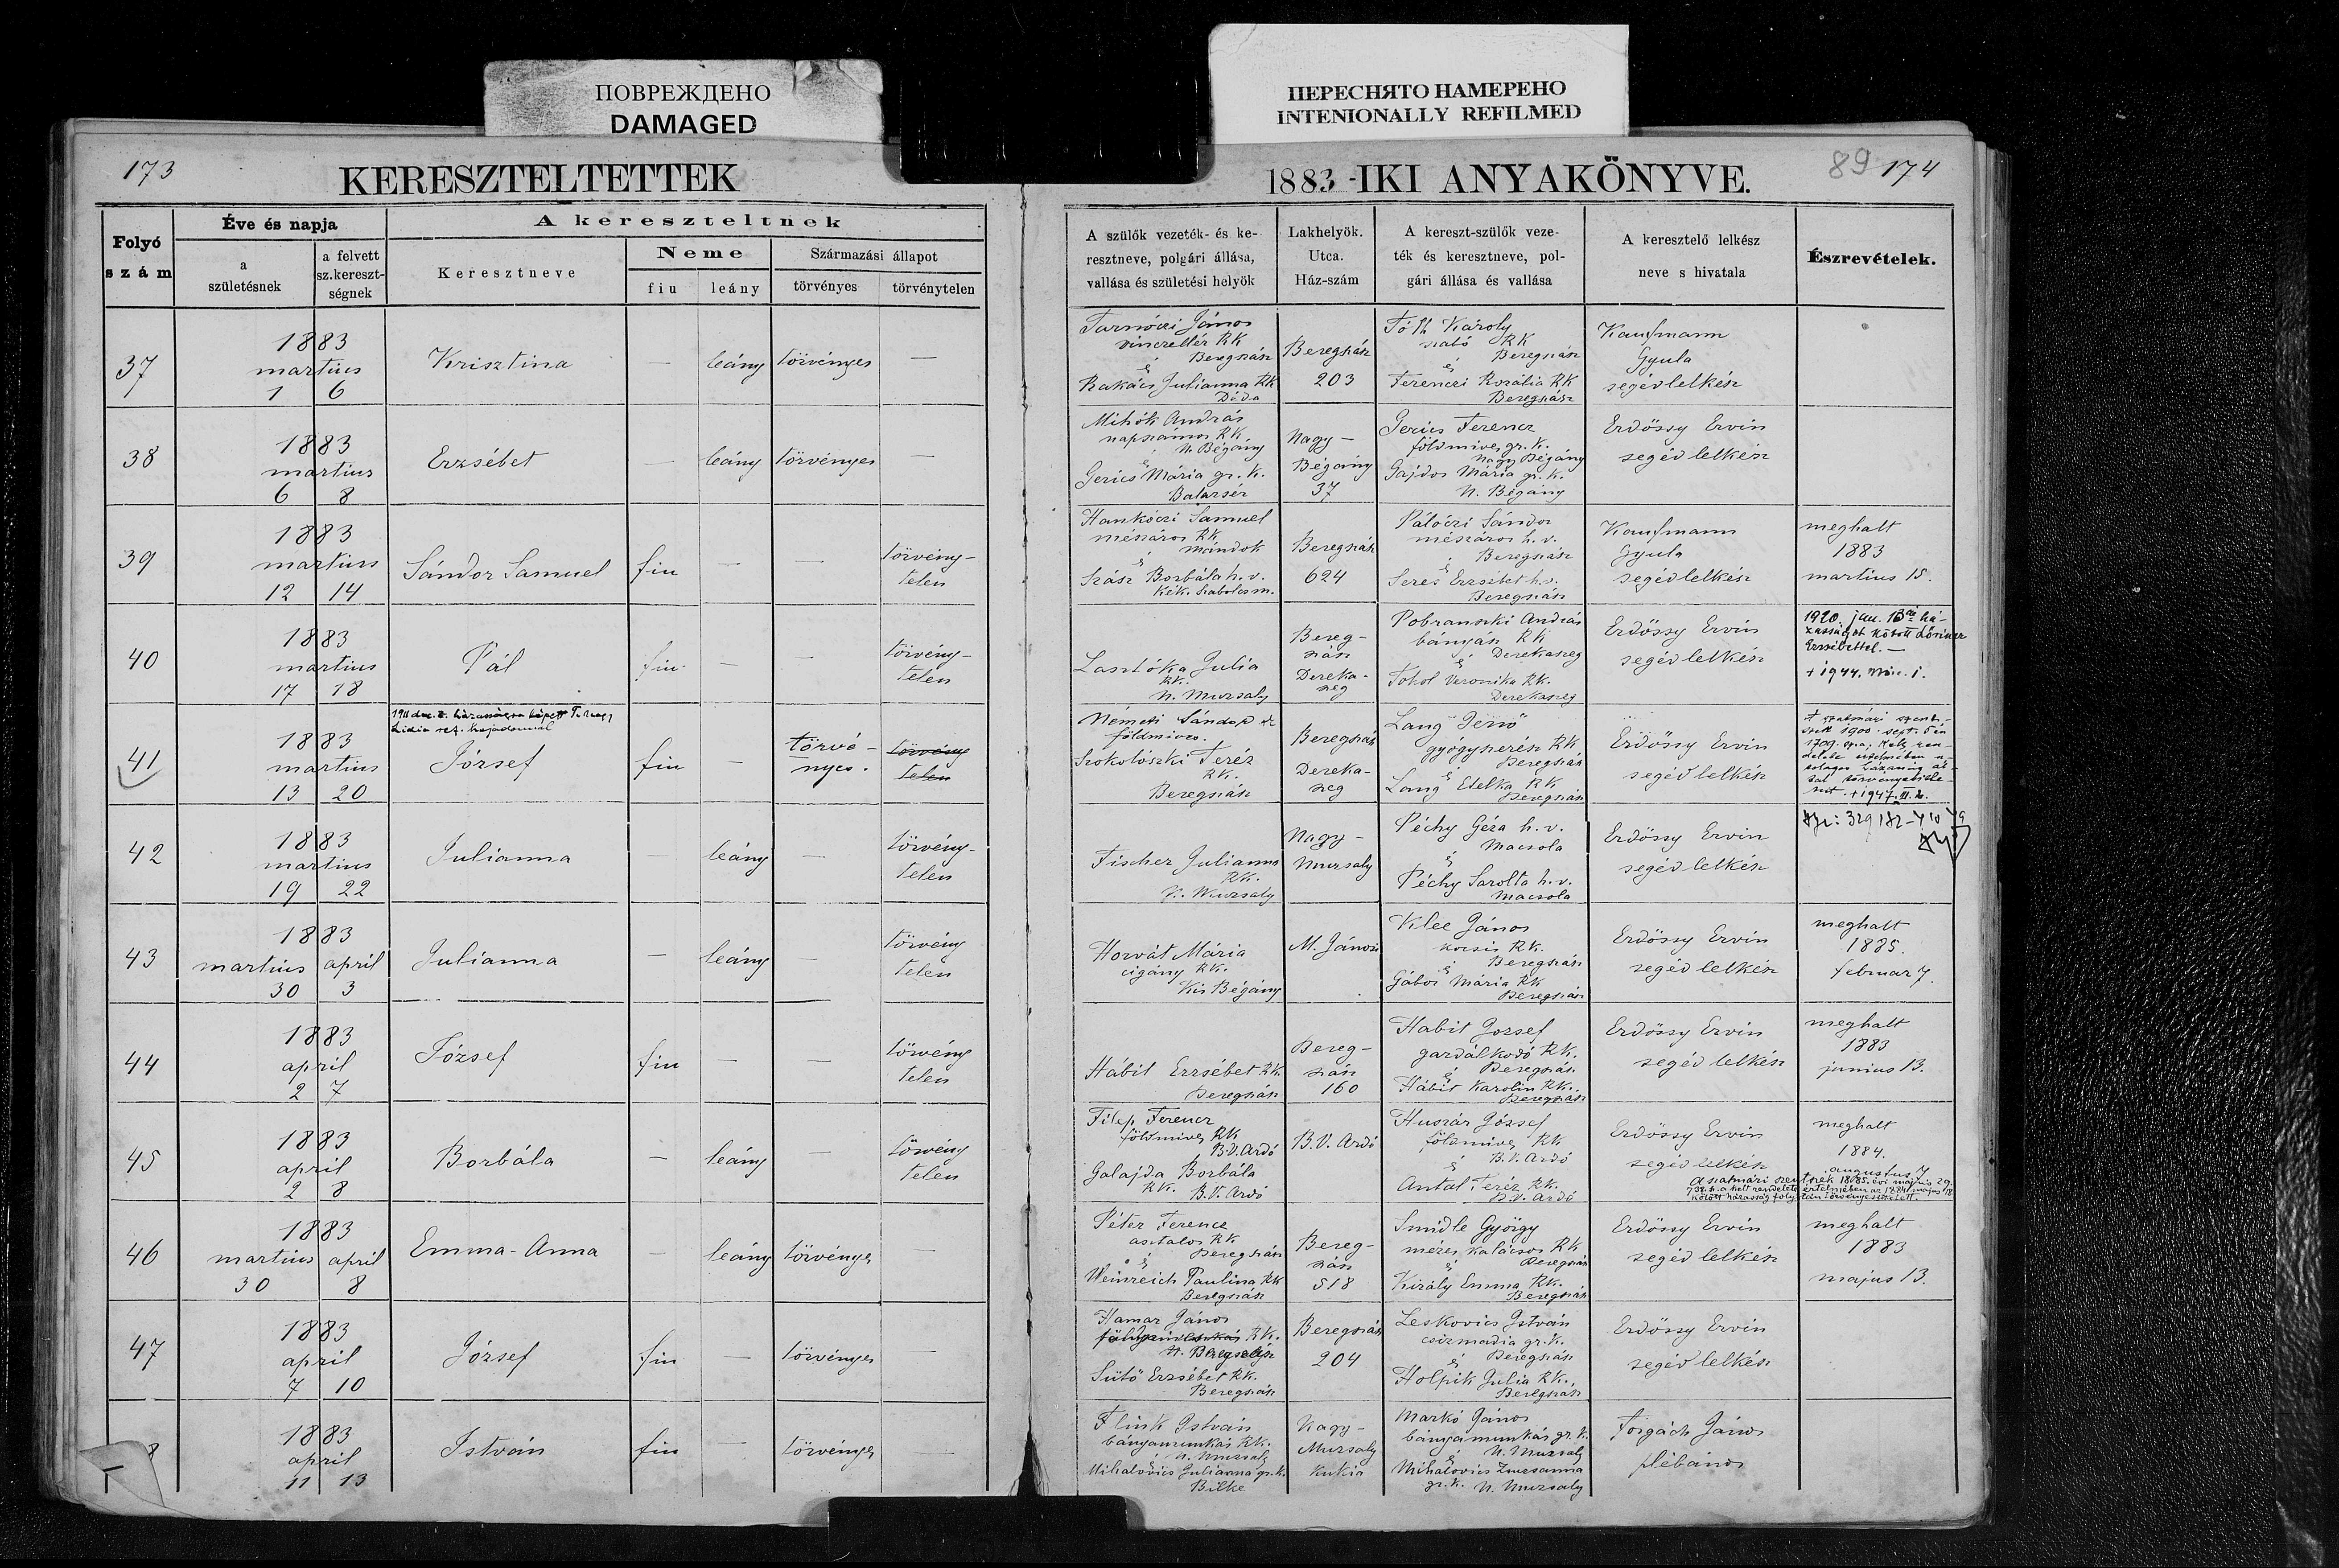 ПОВРЕЖДЕНО
DAMAGED
ПЕРЕСНЯТО НАМЕРЕНО
INTENIONALLY REFILMED
173
KERESZTELTETTEK
1883-IKI ANYAKÖNYVE.
89 174
Folyó szám
Éve és napja
a születésnek
a felvett sz. kereszt-ségnek
A kereszteltnek
Keresztneve
Neme
fiu
leány
Származási állapot
törvényes
törvénytelen
A szülők vezeték- és ke-
resztneve, polgári állása,
vallása és születési helyök
Lakhelyök.
Utca.
Ház-szám
A kereszt-szülők veze-
ték és keresztneve, pol-
gári állása és vallása
A keresztelő lelkész
neve s hivatala
Észrevételek.
37
1883
martius
1 6
Krisztina
—
leány
törvényes
—
Tarnóczi János
vinczellér RK
Beregszász
é
Rakács Julianna RK
Déda
Beregszász
203
Tóth Károly
szabó RK
Beregszász
é
Ferenczi Rozália RK
Beregszász
Kaufmann
Gyula
segédlelkész
38
1883
martius
6 8
Erzsébet
—
leány
törvényes
—
Mihók András
napszámos RK
N. Bégány
é
Gerics Mária gr. k.
Batarsér
Nagy-
Bégány
37
Gerics Ferencz
földmives gr. k.
Nagy Bégány
Gajdos Mária gr. k.
N. Bégány
Erdőssy Ervin
segéd lelkész
39
1883
martius
12 14
Sándor Samuel
fiu
—
—
törvény-
telen
Hankóczi Samuel
mészáros RK
Mándok
é
Szász Borbála h. v.
Kék. Szabolcs m.
Beregszász
624
Pálóczi Sándor
mészáros h. v.
Beregszász
é
Seres Erzsébet h. v.
Beregszász
Kaufmann
Gyula
segédlelkész
meghalt
1883
martius 15.
40
1883
martius
17 18
Pál
fiu
—
—
törvény-
telen
Lasztóka Julia
RK.
N. Muzsaly
Bereg-
szász
Dereka-
szeg
Pobranszki András
bányász RK
Derekaszeg
é
Tokol Veronika RK.
Derekaszeg
Erdőssy Ervin
segéd lelkész
1920. jan. 13 án há-
zasságot kötött Lőrincz
Erzsébettel. —
+ 1944. márc. 1.
41
1883
martius
13 20
1911 dec. 2. házasságra lépett T. Nagy
Lidia ref. hajadonnal
József
fiu
—
törvé-
nyes.
törvény
telen
Németi Sándor
földmives.
Szokolószki Teréz
RK.
Beregszász
Beregszász
Dereka-
szeg
Lang Jenő
gyógyszerész RK
Beregszász
é
Lang Etelka RK
Beregszász
Erdőssy Ervin
segéd lelkész
A szatmári szent-
szék 1900. sept. 5 én
1709. sz. a. kelt ren-
delete értelmében u-
tólagos házasság ál-
tal törvényesitte-
tett. + 1947.
42
1883
martius
19 22
Julianna
—
leány
—
törvény-
telen
Fischer Julianna
RK.
N. Muzsaly
Nagy-
Muzsaly
Péchy Géza h. v.
Macsola
é
Péchy Sarolta h. v.
Macsola
Erdőssy Ervin
segéd lelkész
43
1883
martius april
30 3
Julianna
—
leány
—
törvény
telen
Horvát Mária
cigány RK.
Kis Bégány
M. Jánosi
Klee János
kocsis RK.
Beregszász
é
Gábor Mária RK
Beregszász
Erdőssy Ervin
segéd lelkész
meghalt
1885.
februar 7.
44
1883
april
2 7
József
fiu
—
—
törvény
telen
Hábit Erzsébet RK.
Beregszász
Bereg-
szász
160
Habit Jozsef
gazdálkodó RK.
Beregszász.
é
Hábit Karolin RK.
Beregszász
Erdőssy Ervin
segéd lelkész
meghalt
1883
junius 13.
45
1883
april
2 8
Borbála
—
leány
—
törvény
telen
Filep Ferencz
földmives RK
B.V. Ardó
Galajda Borbála
RK. B.V. Ardó
B.V. Ardó
Huszár József
földmives RK
B.V. Ardó
é
Antal Teréz RK.
B.V. Ardó
Erdőssy Ervin
segéd lelkész
meghalt
1884.
augustus 7
A szatmári szentszék 1885. évi május 29.
738. h. a. kelt rendelete értelmében az 1884 majus 18
kötött házasság folytán törvényesittetett.
46
1883
martius april
30 8
Emma-Anna
—
leány
törvényes
—
Péter Ferencz
asztalos RK.
Beregszász
é
Weinreich Paulina RK
Beregszász
Bereg-
szász
518
Smidle György
mézes kalácsos RK
Beregszász
é
Király Emma RK.
Beregszász
Erdőssy Ervin
segéd lelkész
meghalt
1883
majus 13.
47
1883
april
7 10
József
fiu
—
törvényes
—
Hamar János
RK.
Sütő Erzsébet RK.
Beregszász
Beregszász
204
Leskovics István
csizmadia gr. k.
Beregszász
é
Holpik Julia RK.,
Beregszász
Erdőssy Ervin
segéd lelkész
8
1883
april
11 13
István
fiu
—
törvényes
—
Flink István
bányamunkás RK.
N. Muzsaly
Mihalovics Julianna gr. k.
Bilke
Nagy-
Muzsaly
Kukla
Markó János
bányamunkás gr. k.
N. Muzsaly
é
Mihalovics Zsuzsanna
gr. k. N. Muzsaly
Forgách János
plébános